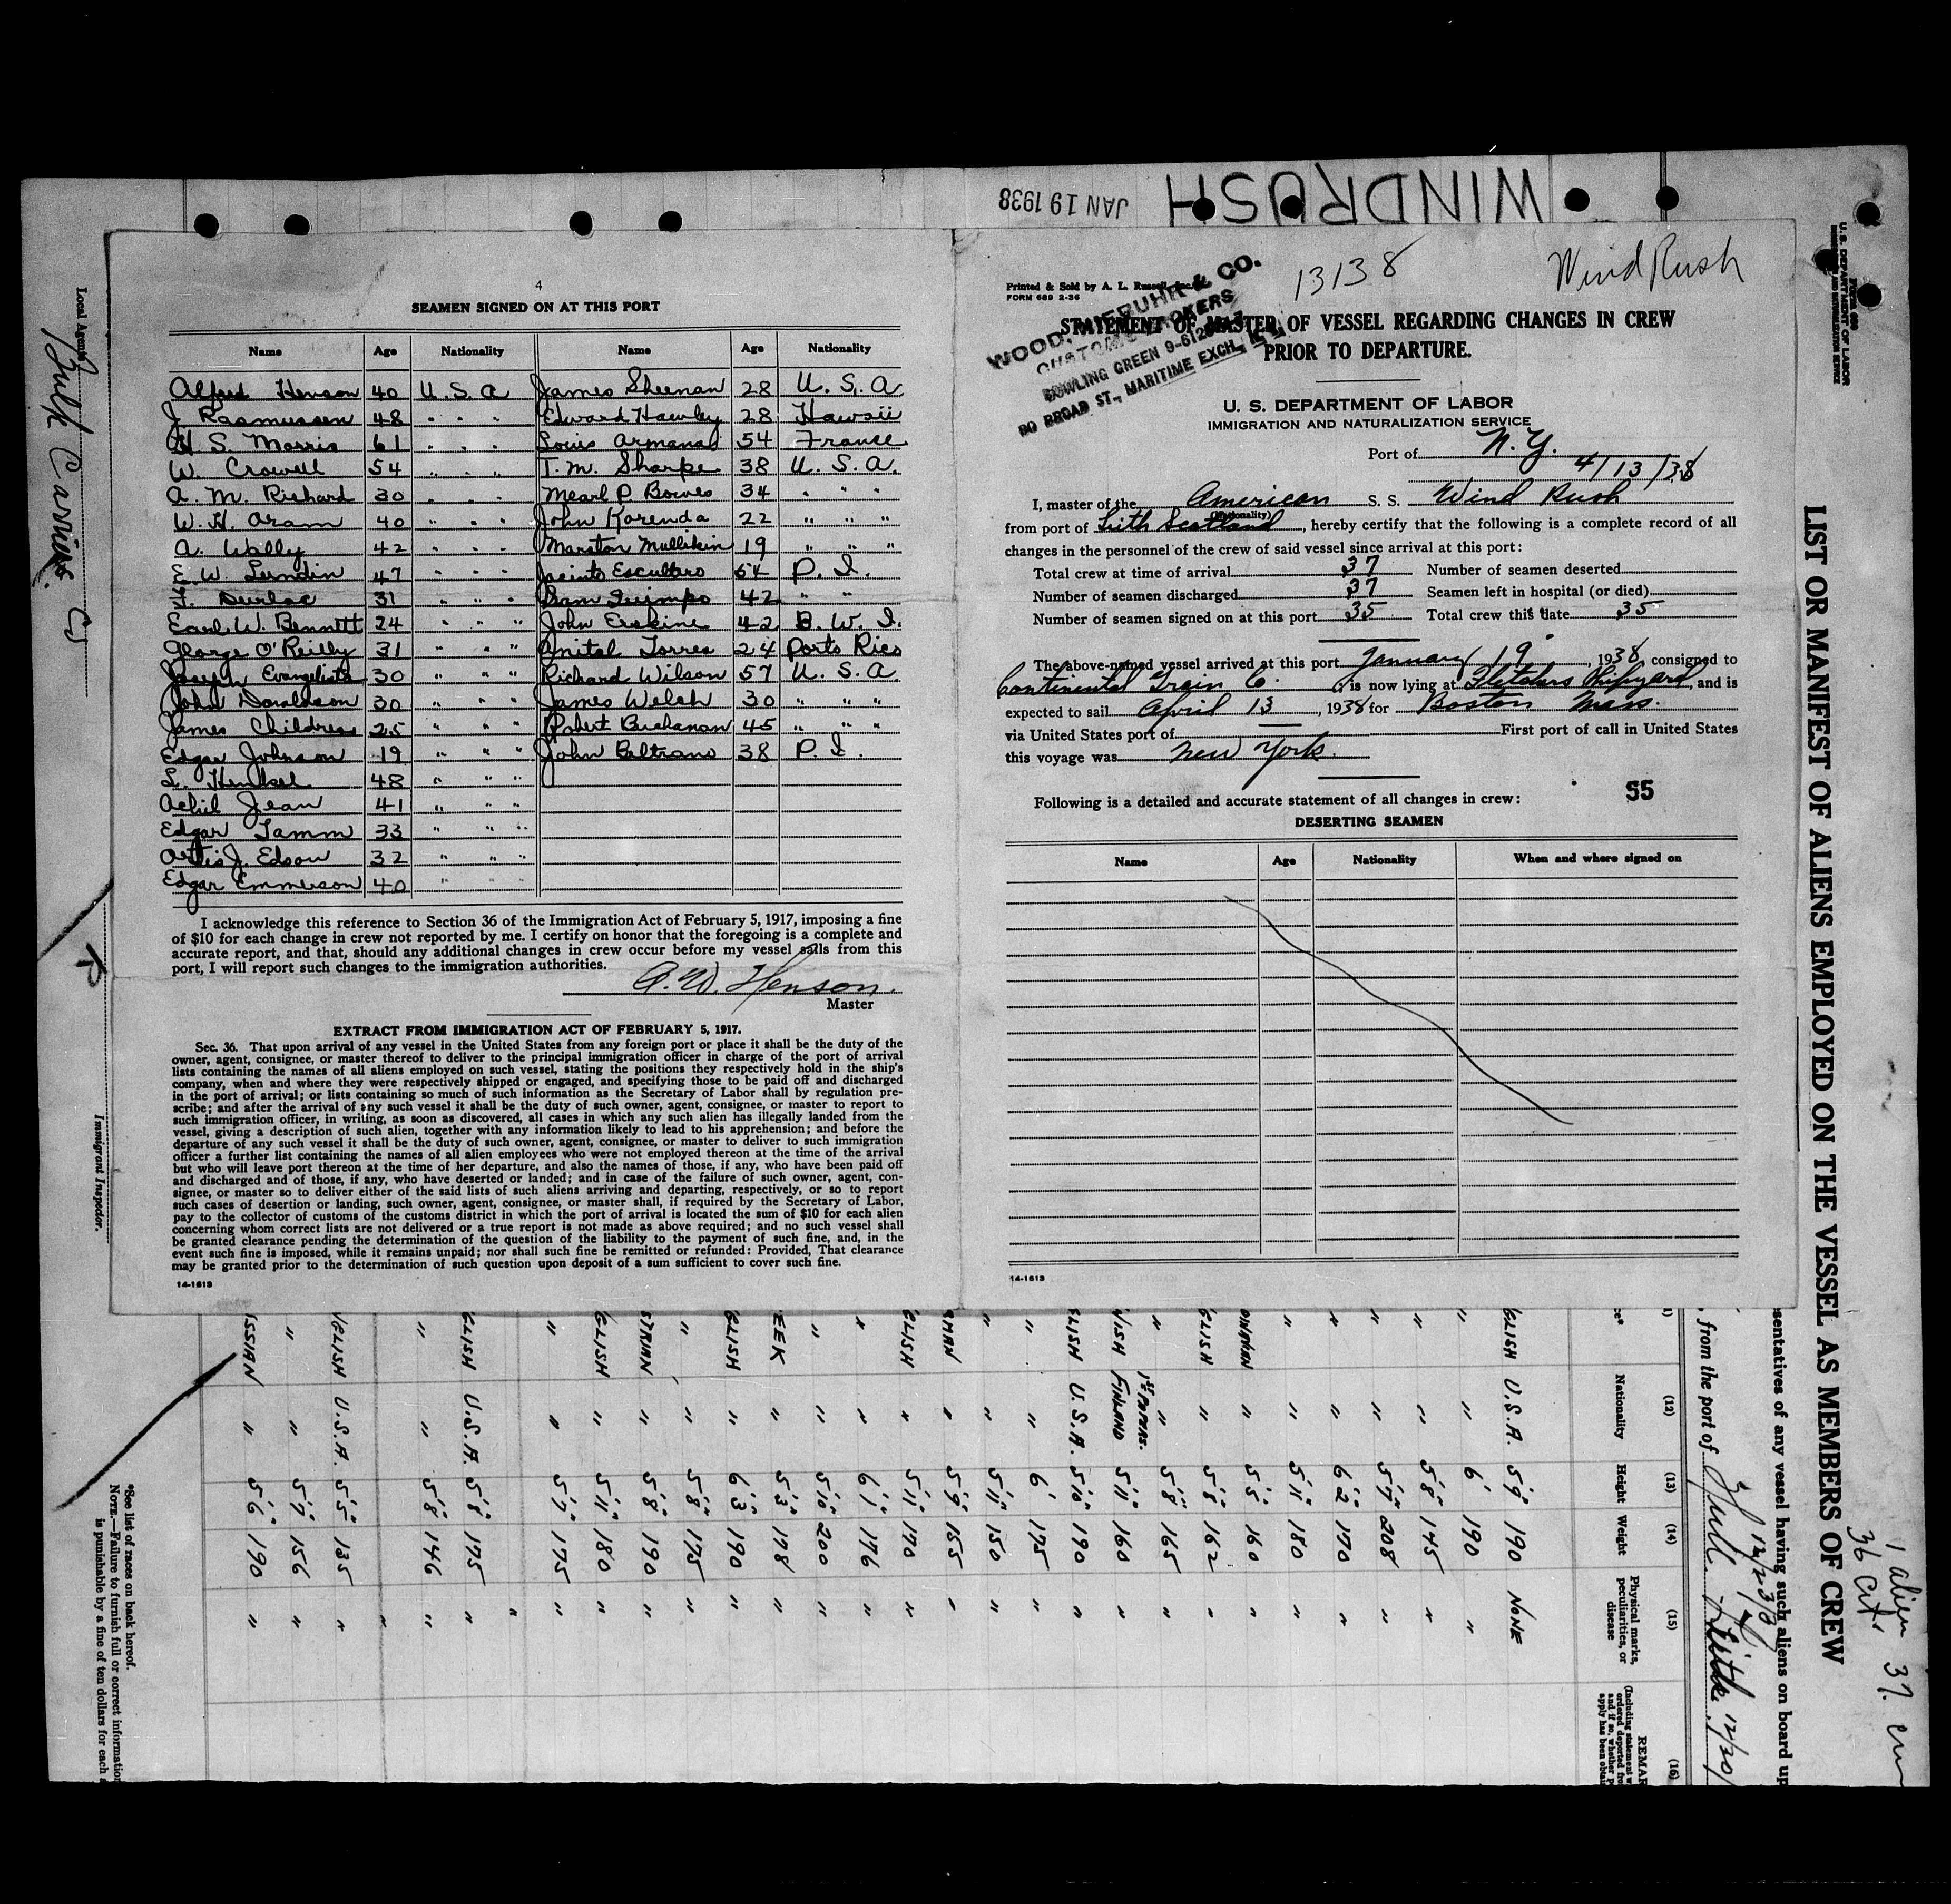 WINDRUSH
JAN 19 1938
4
SEAMEN SIGNED ON AT THIS PORT
Name Age Nationality Name Age Nationality
Alfred Henson 40 U.S.A James Sheenan 28 U.S.A
J. Rasmussen 48 " " " Edward Hawley 28 Hawaii
H S. Morris 61 " " " Louis Armana 54 France
W. Crowell 54 " " " T. M. Sharpe 38 U.S.A.
A. M. Richard 30 " " " Mearl P. Bowes 34 " " "
W. H. Oram 40 " " " John Korenda 22 " " "
A. Wally 42 " " " Marston Mullikin 19 " " "
E. W. Lundin 47 " " " Jacinto Escultero 54 P. I.
F. Durlac 31 " " " Sam Quimpo 42 " "
Earl. W. Bennett 24 " " " John Erskine 42 B. W. I.
George O'Reilly 31 " " " Anital Torres 24 Porto Rico
Joseph Evangelista 30 " " " Richard Wilson 57 U.S.A.
John Donaldson 30 " " " James Welsh 30 " " "
James Childress 25 " " " Robert Buchanan 45 " " "
Edgar Johnson 19 " " " John Beltrano 38 P. I.
L. Henkel 48 " " "
Achil Jean 41 " " "
Edgar Tamm 33 " " "
Artis J. Edson 32 " " "
Edgar Emmerson 40 " " "
I acknowledge this reference to Section 36 of the Immigration Act of February 5, 1917, imposing a fine
of $10 for each change in crew not reported by me. I certify on honor that the foregoing is a complete and
accurate report, and that, should any additional changes in crew occur before my vessel sails from this
port, I will report such changes to the immigration authorities.
A. W. Henson.
Master
EXTRACT FROM IMMIGRATION ACT OF FEBRUARY 5, 1917.
Sec. 36. That upon arrival of any vessel in the United States from any foreign port or place it shall be the duty of the
owner, agent, consignee, or master thereof to deliver to the principal immigration officer in charge of the port of arrival
lists containing the names of all aliens employed on such vessel, stating the positions they respectively hold in the ship's
company, when and where they were respectively shipped or engaged, and specifying those to be paid off and discharged
in the port of arrival; or lists containing so much of such information as the Secretary of Labor shall by regulation pre-
scribe; and after the arrival of any such vessel it shall be the duty of such owner, agent, consignee, or master to report to
such immigration officer, in writing, as soon as discovered, all cases in which any such alien has illegally landed from the
vessel, giving a description of such alien, together with any information likely to lead to his apprehension; and before the
departure of any such vessel it shall be the duty of such owner, agent, consignee, or master to deliver to such immigration
officer a further list containing the names of all alien employees who were not employed thereon at the time of the arrival
but who will leave port thereon at the time of her departure, and also the names of those, if any, who have been paid off
and discharged and of those, if any, who have deserted or landed; and in case of the failure of such owner, agent, con-
signee, or master so to deliver either of the said lists of such aliens arriving and departing, respectively, or so to report
such cases of desertion or landing, such owner, agent, consignee, or master shall, if required by the Secretary of Labor,
pay to the collector of customs of the customs district in which the port of arrival is located the sum of $10 for each alien
concerning whom correct lists are not delivered or a true report is not made as above required; and no such vessel shall
be granted clearance pending the determination of the question of the liability to the payment of such fine, and, in the
event such fine is imposed, while it remains unpaid; nor shall such fine be remitted or refunded: Provided, That clearance
may be granted prior to the determination of such question upon deposit of a sum sufficient to cover such fine.
14-1613
13138
Wind Rush
Printed & Sold by A. L. Russell, Inc.
FORM 689 2-36
WOOD, NIEBUHR & CO.
CUSTOMS BROKERS
BOWLING GREEN 9-
80 BROAD ST., MARITIME EXCH., N.Y.
STATEMENT OF MASTER OF VESSEL REGARDING CHANGES IN CREW
PRIOR TO DEPARTURE.
U. S. DEPARTMENT OF LABOR
IMMIGRATION AND NATURALIZATION SERVICE
Port of N. Y.
4/13/38
I, master of the American S. S. Wind Rush
(Nationality)
from port of Leith Scotland, hereby certify that the following is a complete record of all
changes in the personnel of the crew of said vessel since arrival at this port:
Total crew at time of arrival 37 Number of seamen deserted
Number of seamen discharged 37 Seamen left in hospital (or died)
Number of seamen signed on at this port 35 Total crew this date 35
The above-named vessel arrived at this port January 19, 1938, consigned to
Continental Grain Co. is now lying at Fletchers Shipyard, and is
expected to sail April 13, 1938 for Boston Mass.
via United States port of First port of call in United States
this voyage was New York.
Following is a detailed and accurate statement of all changes in crew: 55
DESERTING SEAMEN
Name Age Nationality When and where signed on
14-1613
U. S. DEPARTMENT OF LABOR
LIST OR MANIFEST OF ALIENS EMPLOYED ON THE VESSEL AS MEMBERS OF CREW
1 alien 37. crew
36 cit.
sentatives of any vessel having such aliens on board up
, from the port of Hull 12/23/37 Leith 12/30/
(12) (13) (14) (15) (16)
Nationality Height Weight Physical marks, peculiarities, or disease REMAR
GLISH U.S.A. 5'9" 190 NONE
" " 6' 190 "
" " 5'8" 145 "
" " 5'7" 208 "
" " 6'2" 170 "
" " 5'11" 180 "
" " 5'5" 160 "
GLISH " 5'8" 162 "
" 1ST PAPERS. " 5'8" 165 "
NISH FINLAND 5'11" 160 "
GLISH U.S.A. 5'10" 190 "
" " 6' 175 "
" " 5'11" 150 "
RMAN " 5'9" 155 "
GLISH " 5'11" 170 "
" " 6'1" 176 "
" " 5'10" 200 "
EEK " 5'3" 178 "
GLISH " 6'3" 190 "
" " 5'8" 175 "
STRIAN " 5'8" 190 "
GLISH " 5'11" 180 "
" " 5'7" 175 "
GLISH U.S.A. 5'8" 175 "
" " 5'8" 146 "
GLISH U.S.A. 5'5" 135 "
" " 5'7" 156 "
SSIAN " 5'6" 190 "
*See list of races on back hereof.
NOTE.—Failure to furnish full or correct information
is punishable by a fine of ten dollars for each
Local Agents
Bulk Carriers
Immigrant Inspector.